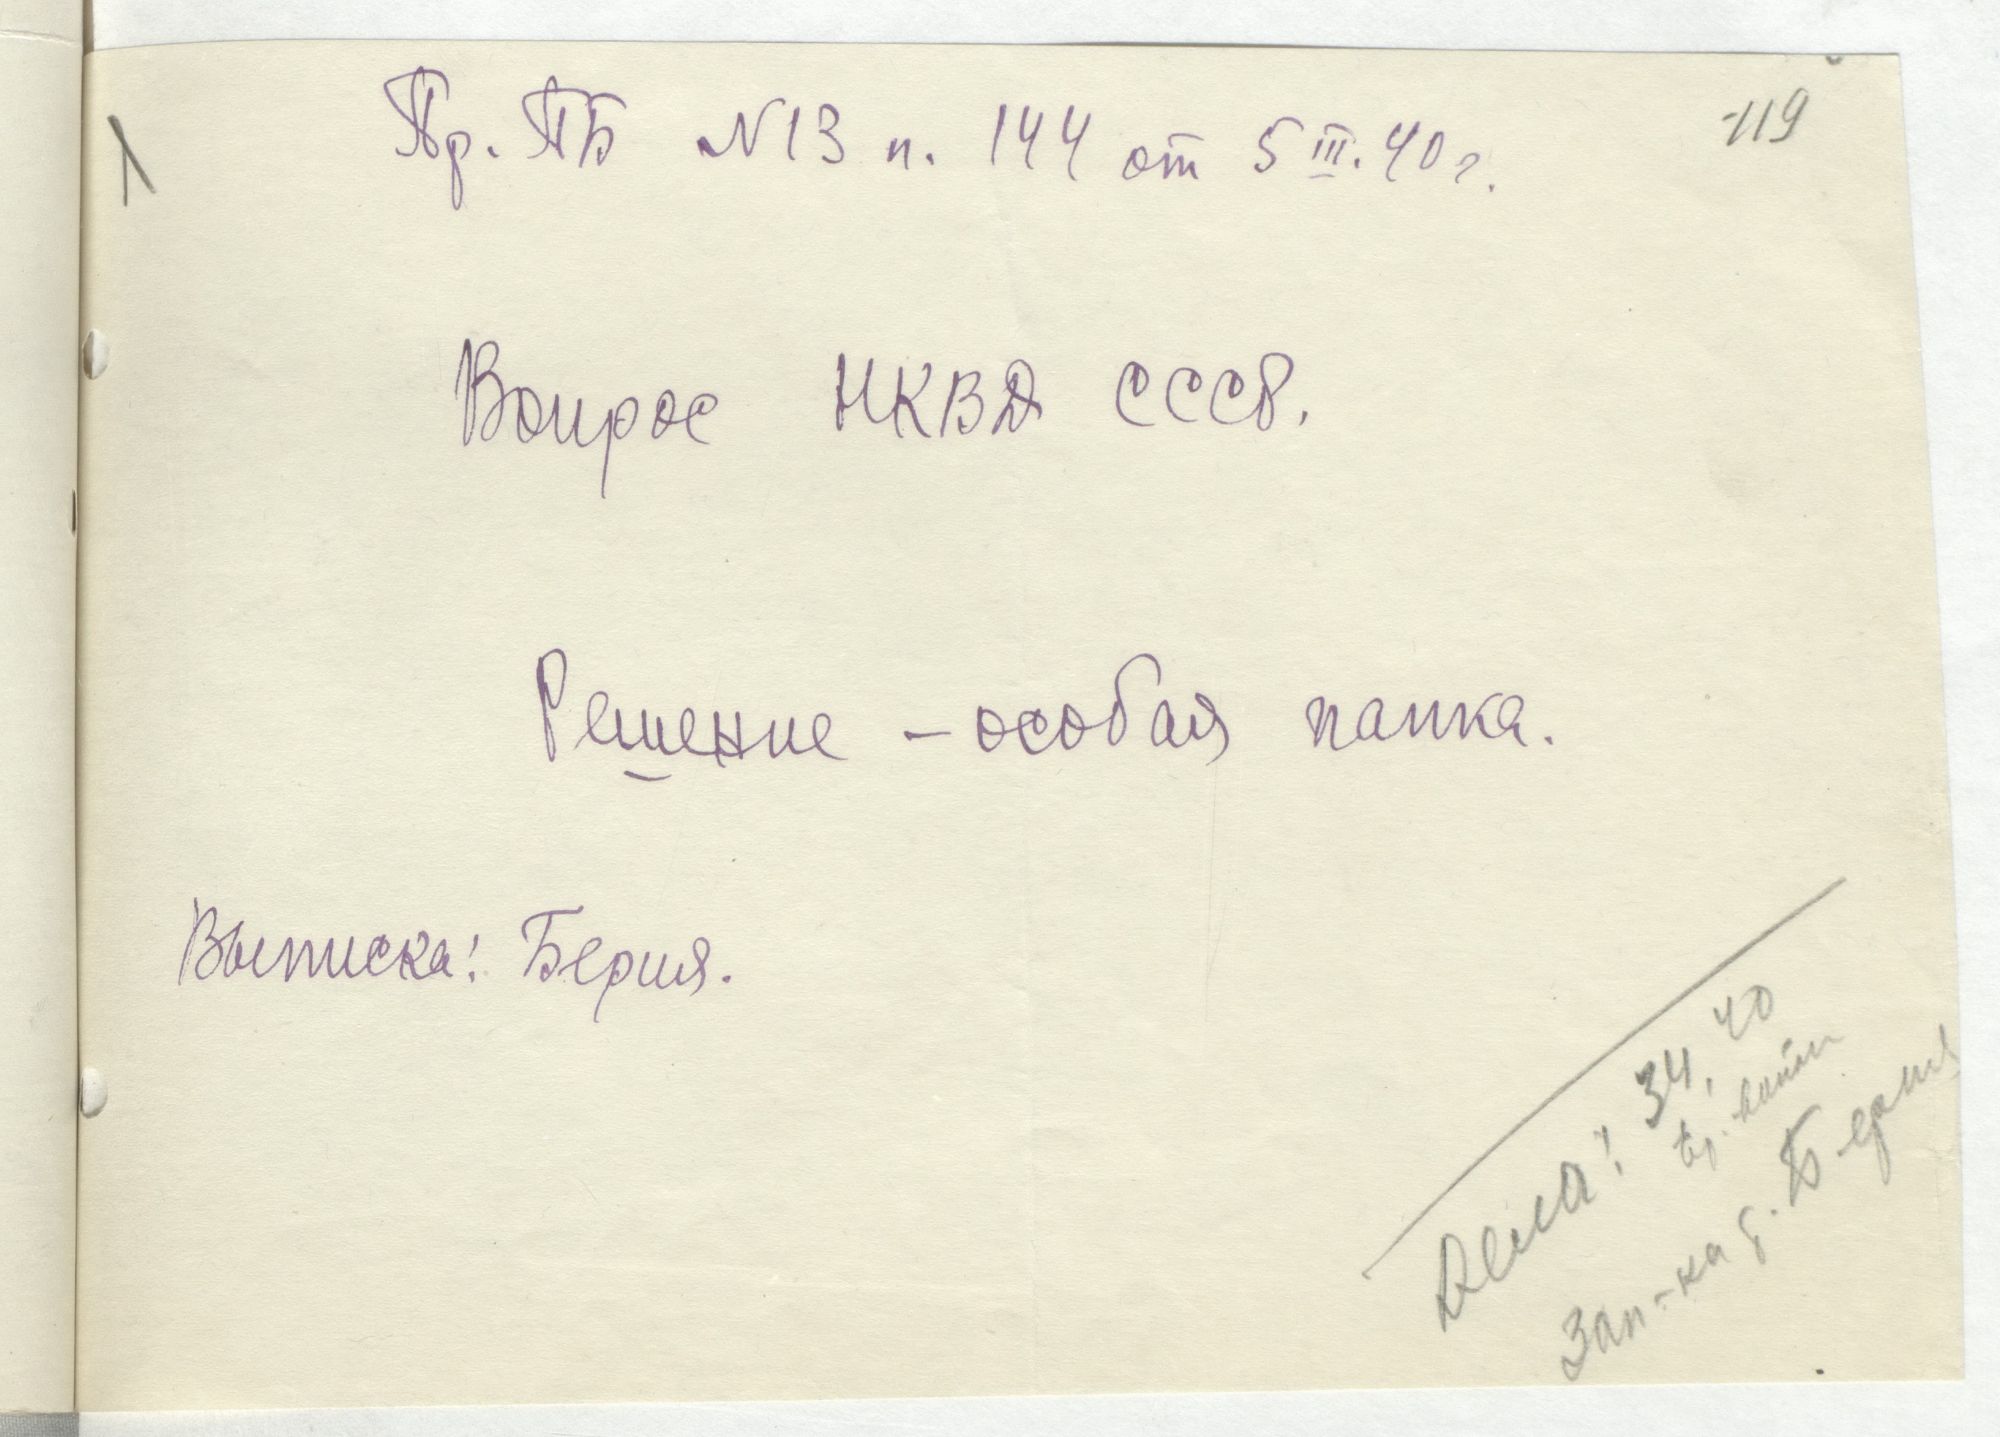 119
Пр. ПБ N13 п. 144 от 5 III. 40 г.
Вопрос НКВД СССР.
Решение – особая папка.
Выписка: Берия.
Дела: 34, 40
Зап-ка Берия